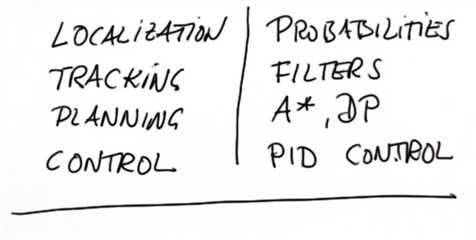 LOCALIZATION | PROBABILITIES
TRACKING | FILTERS
PLANNING | A*, DP
CONTROL | PID CONTROL